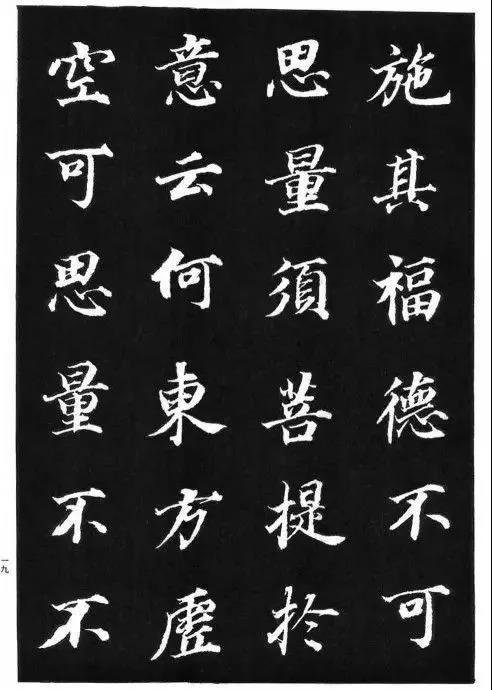 施其福德不可
思量須菩提於
意云何東方虛
空可思量不不
一九